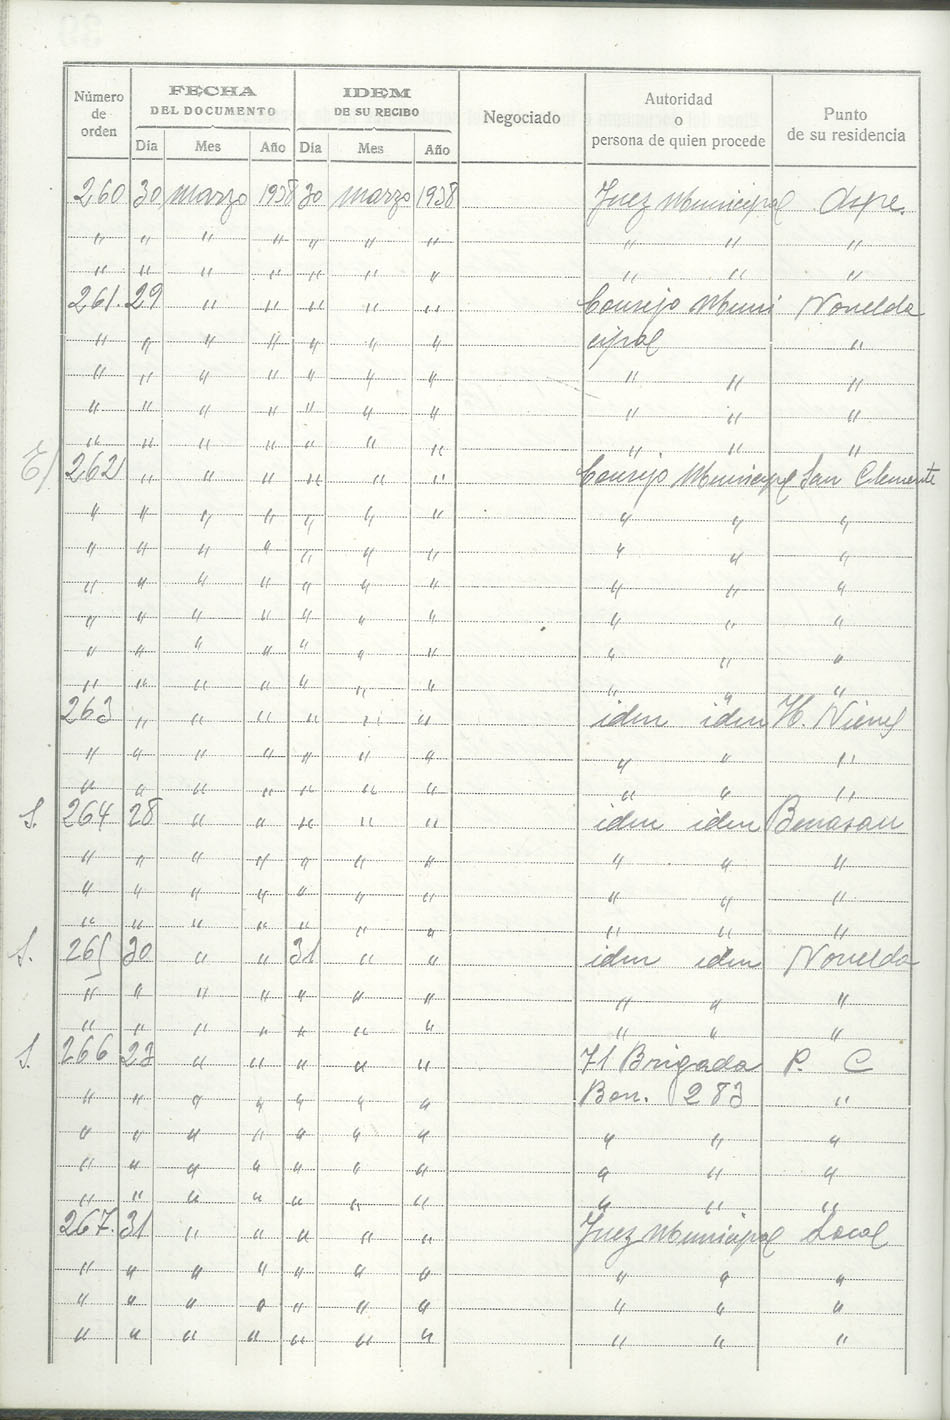 Número de orden | FECHA DEL DOCUMENTO | IDEM DE SU RECIBO | Negociado | Autoridad o persona de quien procede | Punto de su residencia
Día | Mes | Año | Día | Mes | Año
260 30 marzo 1938 30 marzo 1938 Juez Municipal Aspe.
" " " " " " " " " "
" " " " " " " " " "
261. 29 " " " " " Consejo Muni Novelda
" " " " " " " cipal "
" " " " " " " " " "
" " " " " " " " " "
" " " " " " " " " "
E/ 262 " " " " " " Consejo Municipal San Clemente
" " " " " " " " " "
" " " " " " " " " "
" " " " " " " " " "
" " " " " " " " " "
" " " " " " " " " "
" " " " " " " " " "
263 " " " " " " idem idem H. Nieves
" " " " " " " " " "
" " " " " " " " " "
S. 264 28 " " " " " idem idem Benasau
" " " " " " " " " "
" " " " " " " " " "
" " " " " " " " " "
S. 265 30 " " 31 " " idem idem Novelda
" " " " " " " " " "
" " " " " " " " " "
S. 266 23 " " " " " 71 Brigada P. C
" " " " " " " Bon. 283 "
" " " " " " " " " "
" " " " " " " " " "
" " " " " " " " " "
267. 31 " " " " " Juez Municipal Local
" " " " " " " " " "
" " " " " " " " " "
" " " " " " " " " "